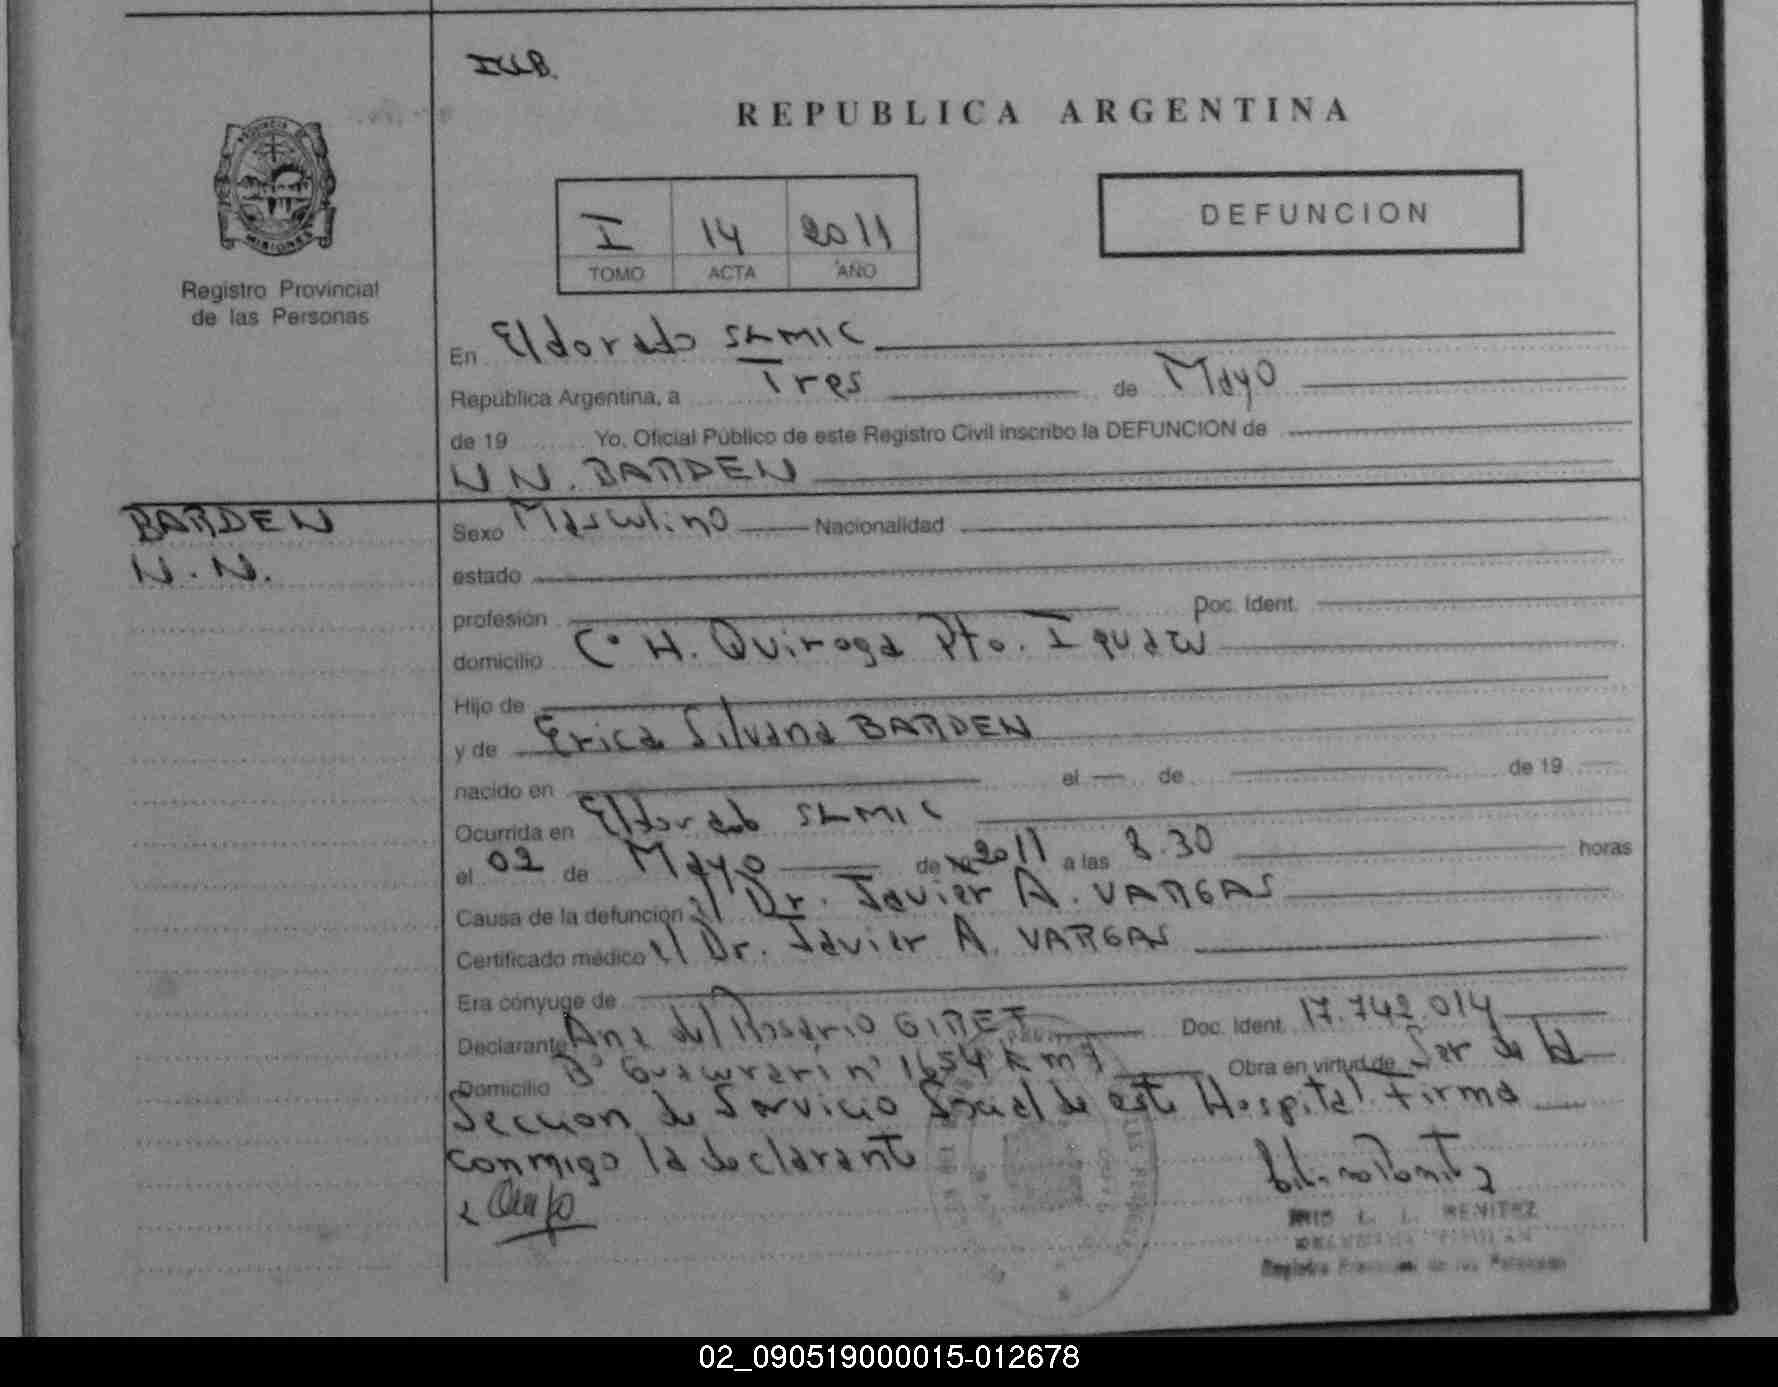 REPUBLICA ARGENTINA
PROVINCIA DE
MISIONES
Registro Provincial
de las Personas
I 14 2011
TOMO ACTA AÑO
DEFUNCION
En Eldorado SAMIC
República Argentina, a Tres de Mayo
de 19 Yo, Oficial Público de este Registro Civil inscribo la DEFUNCION de
N N. BARDEN
BARDEN
N. N.
Sexo Masculino Nacionalidad
estado
profesión Doc. Ident.
domicilio C° H. Quiroga Pto. Iguazu
Hijo de
y de Erica Silvana BARDEN
nacido en el de de 19
Ocurrida en Eldorado SAMIC
el 02 de Mayo de 2011 a las 8.30 horas
Causa de la defunción Dr. Javier A. VARGAS
Certificado médico Dr. Javier A. VARGAS
Era cónyuge de
Declarante Ana del Rosario Doc. Ident. 17.742.014
Domicilio B° Guawrari n° 1654 km 7 Obra en virtud de Ser de la
Seccion de Servicio Social de este Hospital. Firma
conmigo la declarante
L. L. BENITEZ
Registro Provincial de las Personas
02_090519000015-012678